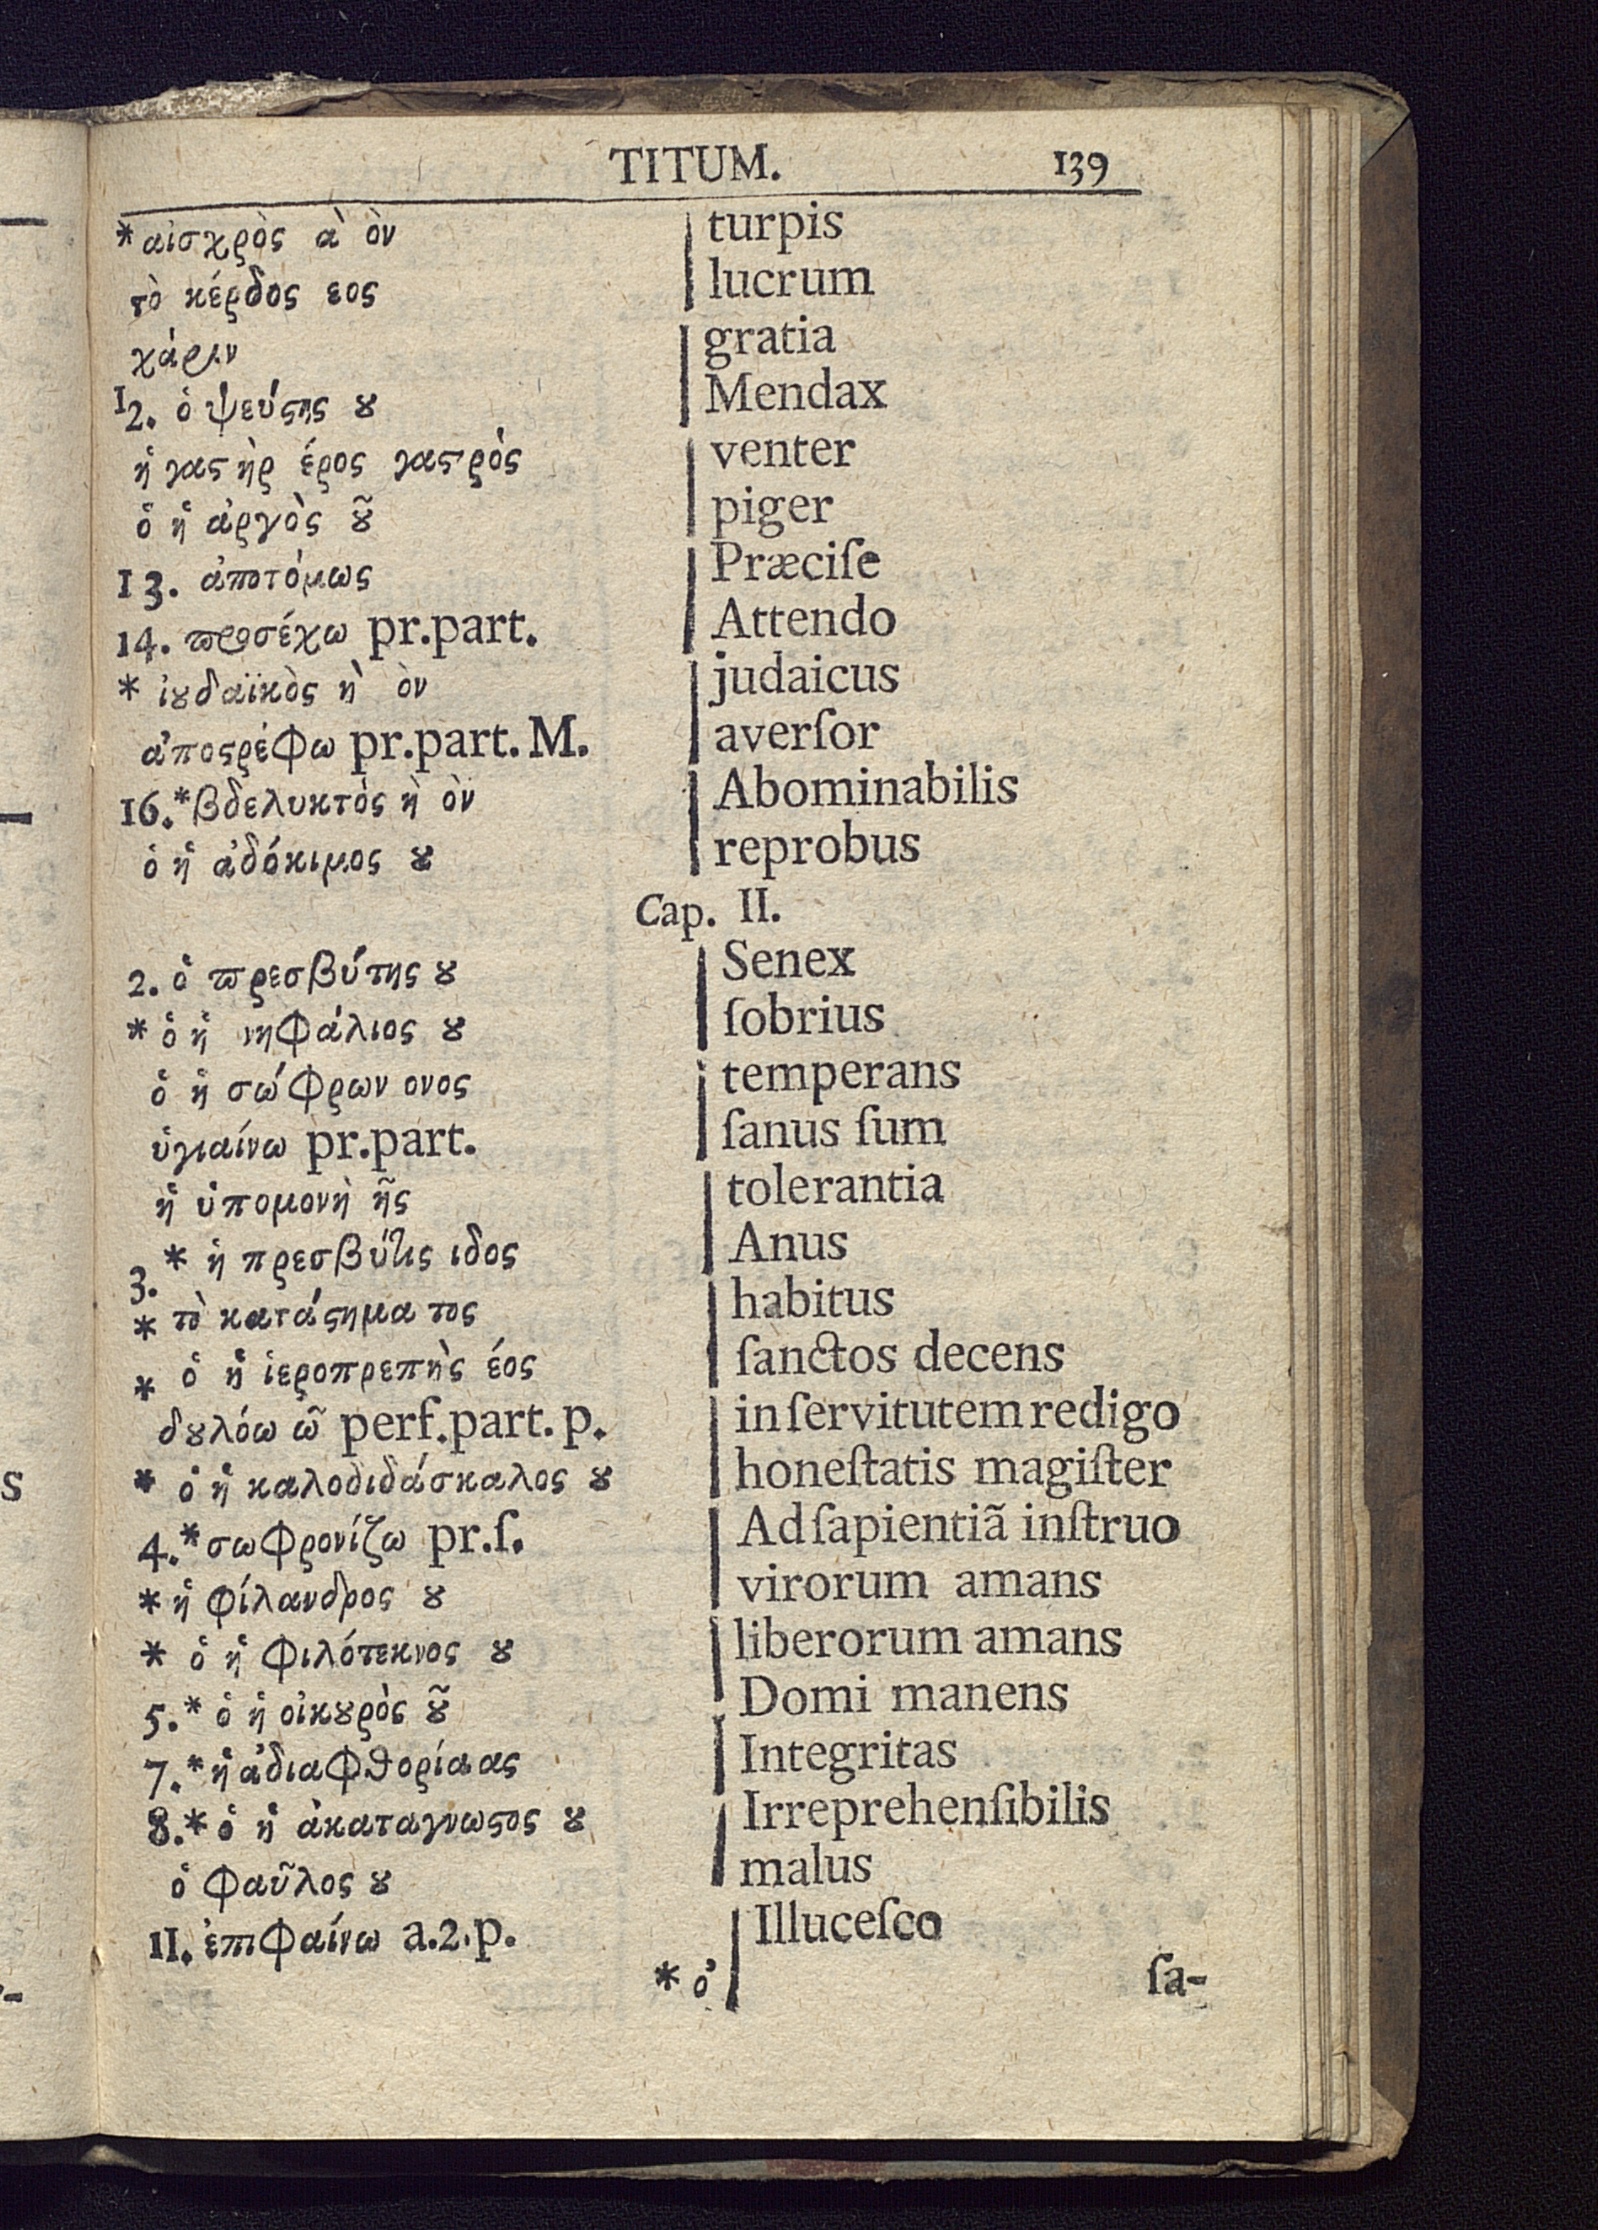 TITUM. 139
*αἰσχρὸς ὰ ὸν turpis
τὸ κέρδος εος lucrum
χάριν gratia
12. ὁ ψεύϛης ȣ Mendax
ἡ γαϛὴρ έρος γαϛρὸς venter
ὁ ἡ ἀργὸς ȣ͂ piger
13. ἀποτόμως Præciſe
14. ϖροσέχω pr.part. Attendo
* ἰȣδαϊκὸς ὴ ὸν judaicus
ἀποϛρέφω pr.part. M. averſor
16.*βδελυκτὸς ὴ ὸν Abominabilis
ὁ ἡ ἀδόκιμος ȣ reprobus
Cap. II.
2. ὁ ϖρεσβύτης ȣ Senex
* ὁ ἡ νηφάλιος ȣ ſobrius
ὁ ἡ σώφρων ονος temperans
ὑγιαίνω pr.part. ſanus ſum
ἡ ὑπομονὴ ῆς tolerantia
3. * ἡ πρεσβύτις ιδος Anus
* τὸ κατάϛημα τος habitus
* ὁ ἡ ἱεροπρεπὴς έος ſanctos decens
δȣλόω ῶ perf.part. p. in ſervitutem redigo
* ὁ ἡ καλοδιδάσκαλος ȣ honeſtatis magiſter
4.*σωφρονίζω pr.ſ. Ad ſapientiã inſtruo
* ἡ φίλανδρος ȣ virorum amans
* ὁ ἡ φιλότεκνος ȣ liberorum amans
5.* ὁ ἡ οἰκȣρὸς ȣ͂ Domi manens
7.*ἡ ἀδιαφθορία ας Integritas
8.* ὁ ἡ ἀκαταγνωϛος ȣ Irreprehenſibilis
ὁ φαῦλος ȣ malus
11. ἐπιφαίνω a.2.p. Illuceſco
* ὁ ſa-